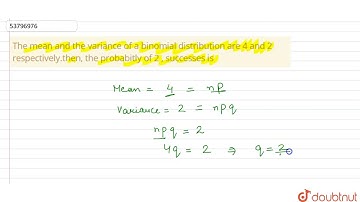 53796976
The mean and the variance of a binomial distribution are 4 and 2
respectively.then, the probabitly of 2 , successes is
Mean = 4 = nP
Variance = 2 = npq
npq = 2
4q = 2 ⇒ q = 2
doubtnut